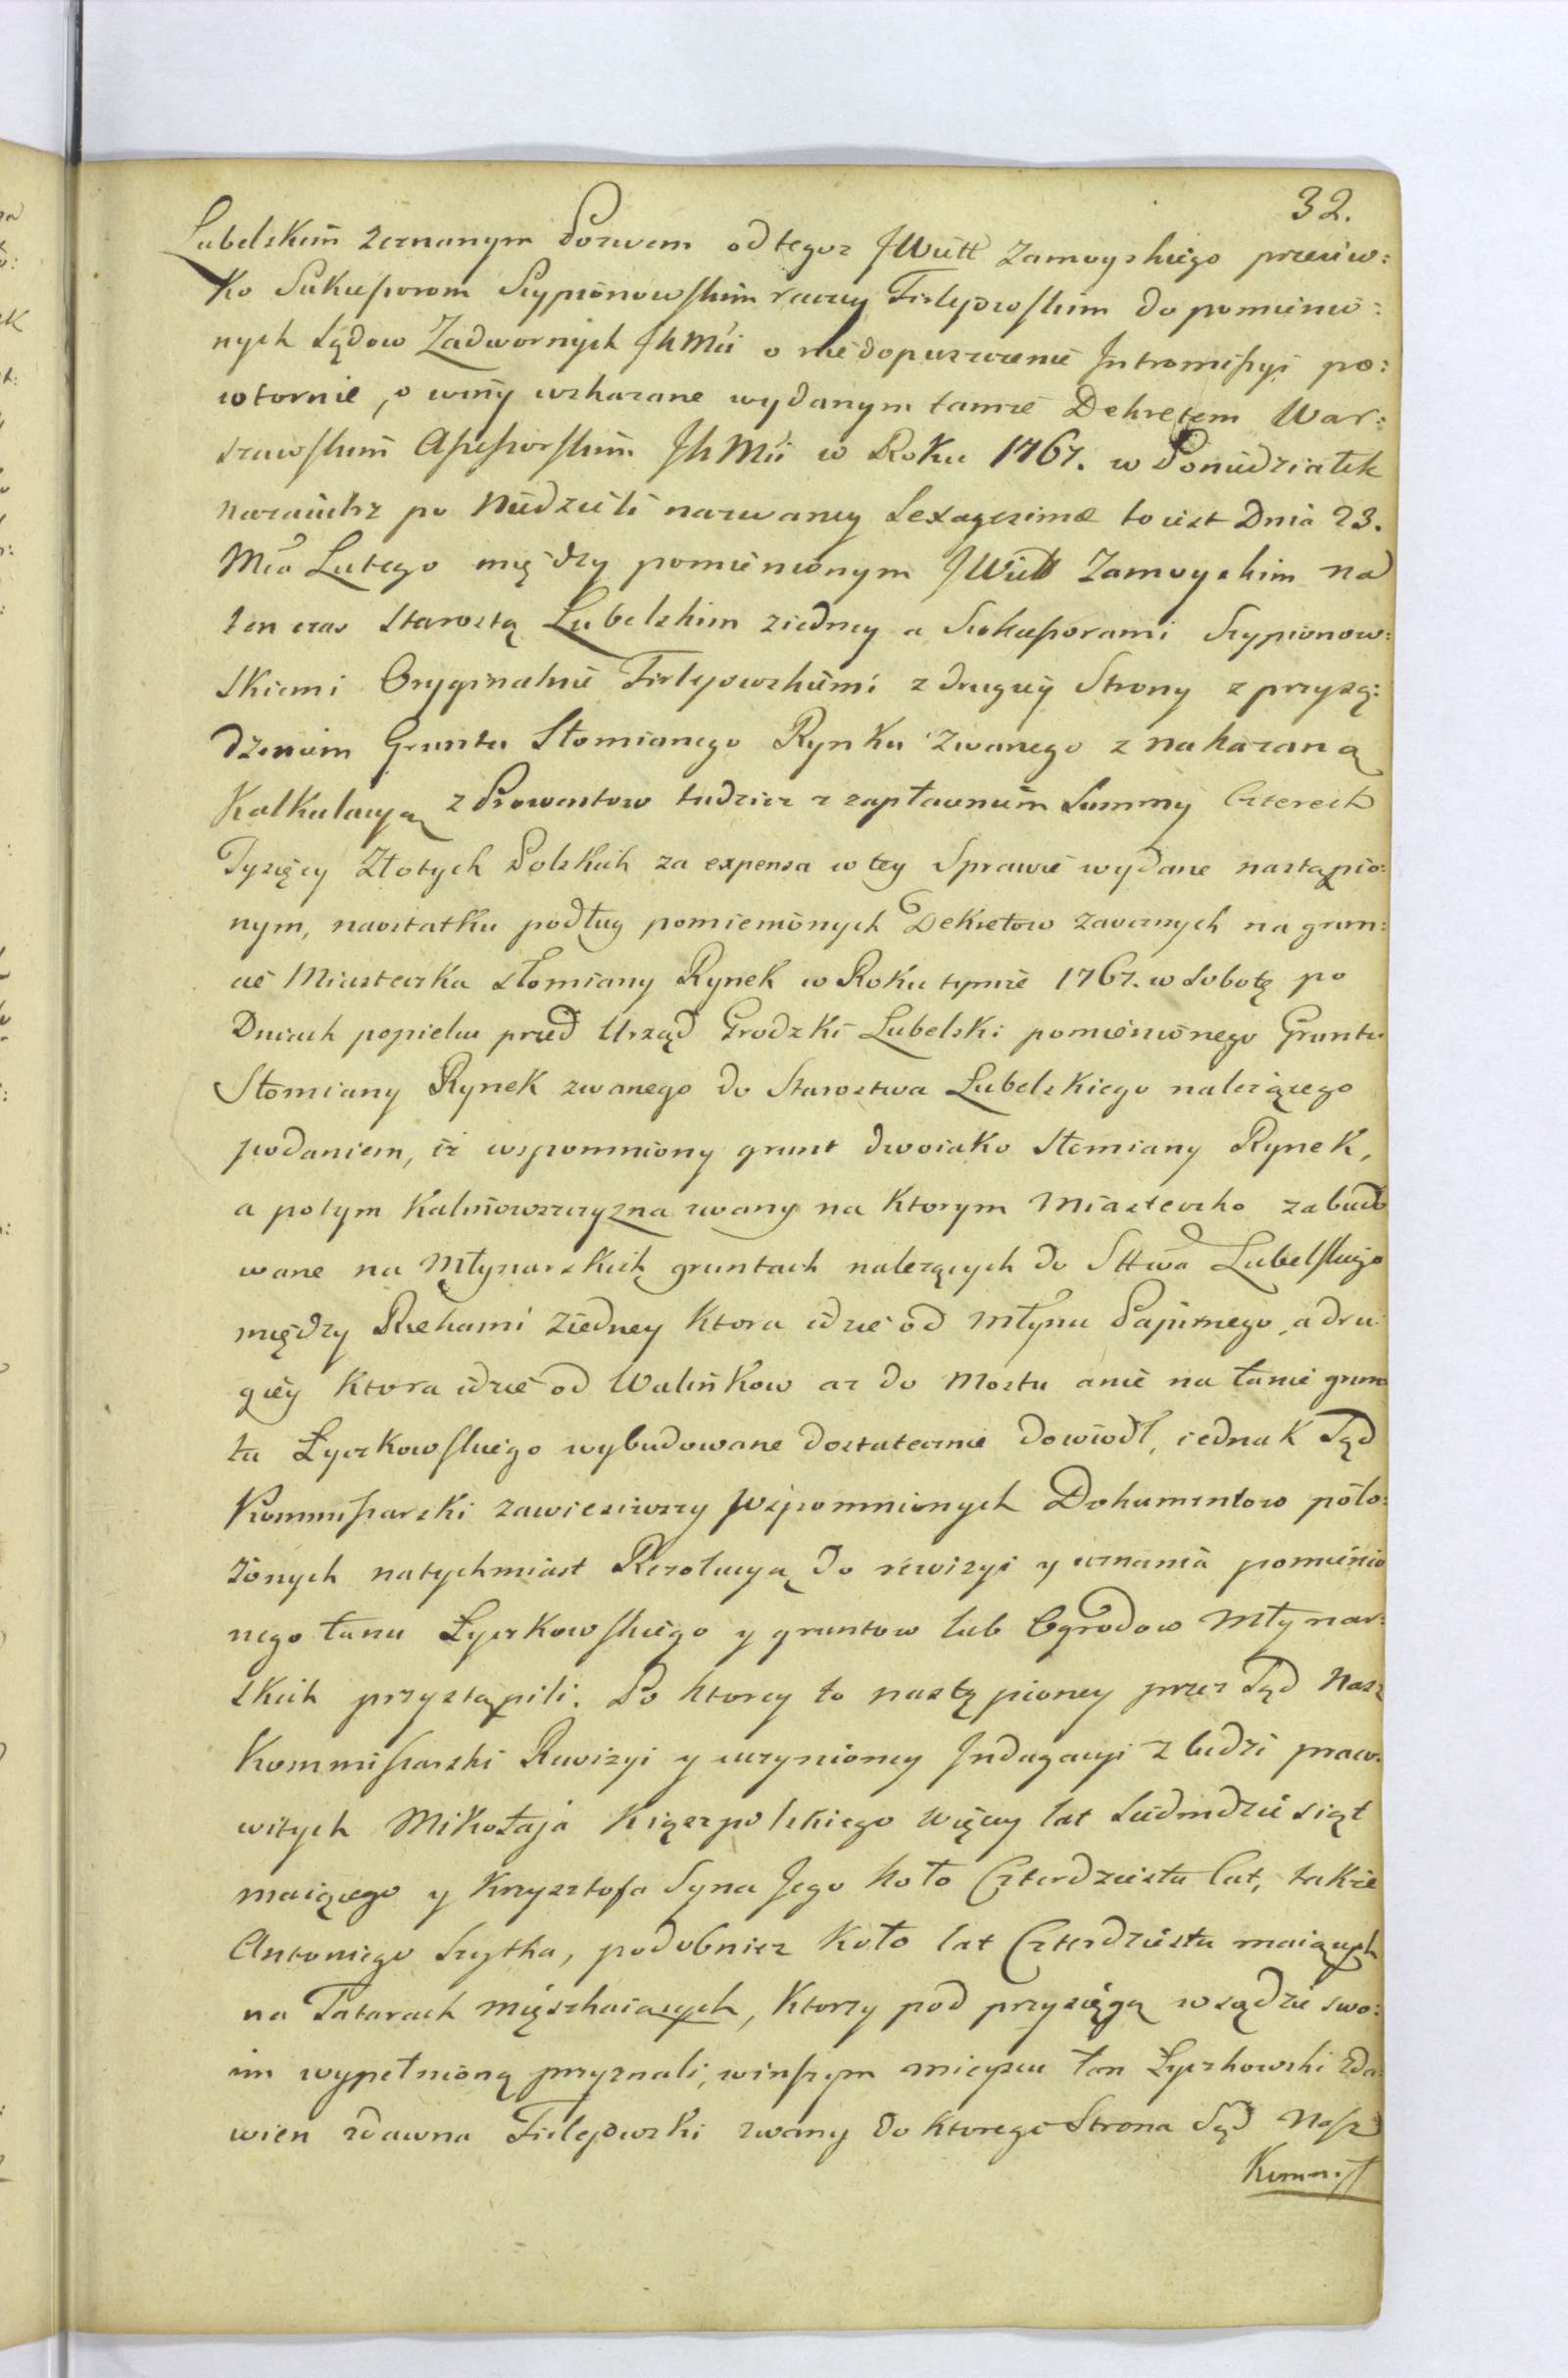 32.
Lubelskim zeznanym Pozwem od tegoz JWütt Zamoyskiego przeciw:
ko Sukcessorom Scypionowskim raczey Firleyowskim do pomienio:
nych Sądow Zadwornych JKMci o niedopuszczenie Intromissyi po:
wtornie, o winy wskazane wydanym tamże Dekretem War:
szawskim Assessorskim JKMci w Roku 1767. w Poniedziałek
nazaiutrz po Niedzieli nazwaney Sexagesimæ to iest Dnia 23.
Mca Lutego między pomienionym JWütt Zamoyskim na
ten czas Starostą Lubelskim ziedney a Sukcessorami Scypionow:
skiemi Oryginalnie Firleyowskiemi z drugiey Strony z przysą:
dzeniem Gruntu Słomianego Rynku zwanego z nakazaną
Kalkulacyą z Prowentow tudziez z zapłaceniem Summy Czterech
Tysięcy Złotych Polskich za expensa w tey Sprawie wydane nastąpio:
nym, naostatku podług pomienionych Dekretow zaocznych na grun:
cie Miasteczka Słomiany Rynek w Roku tymże 1767. w Sobotę po
Dniach popielcu przed Urząd Grodzki Lubelski pomienionego Gruntu
Słomiany Rynek zwanego do Starostwa Lubelskiego należącego
podaniem, iż wspomniony grunt dwoiako Słomiany Rynek,
a potym Kalinowszczyzna zwany na ktorym Miasteczko zabudo
wane na Młynarskich gruntach należących do Sttwa Lubelskiego
między Rzekami ziedney ktora idzie od Młyna Papirnego, a dru
giey ktora idzie od Walinkow az do Mostu a nie na łanie grun
tu Łyczkowskiego wybudowane dostatecznie dowiodł, iednak Sąd
Kommissarski zawiesiwszy wspomnionych Dokumentow poło:
żonych natychmiast Rezolucyą do rewizyi y uznania pomienio
nego łanu Łyczkowskiego y gruntow lub Ogrodow Młynar:
skich przystąpili. Po ktorey to nastąpioney przez Sąd Nasz
Kommissarski Rewizyi y uczynioney Indagacyi z ludzi praco:
witych Mikołaja Książpolskiego więcey lat Siedmdziesiąt
maiącego y Krzysztofa Syna Jego koło Czterdziestu lat, takze
Antoniego Szytka, podobniez koło lat Czterdziestu maiących
na Tatarach mięszkaiących, ktorzy pod przysięgą w sądzie swo:
im wypełnioną przyznali, winszym mieyscu łan Łyczkowski zda
wien zdawna Firleyowski zwany do ktorego Strona Sąd Nasz
Kommiss